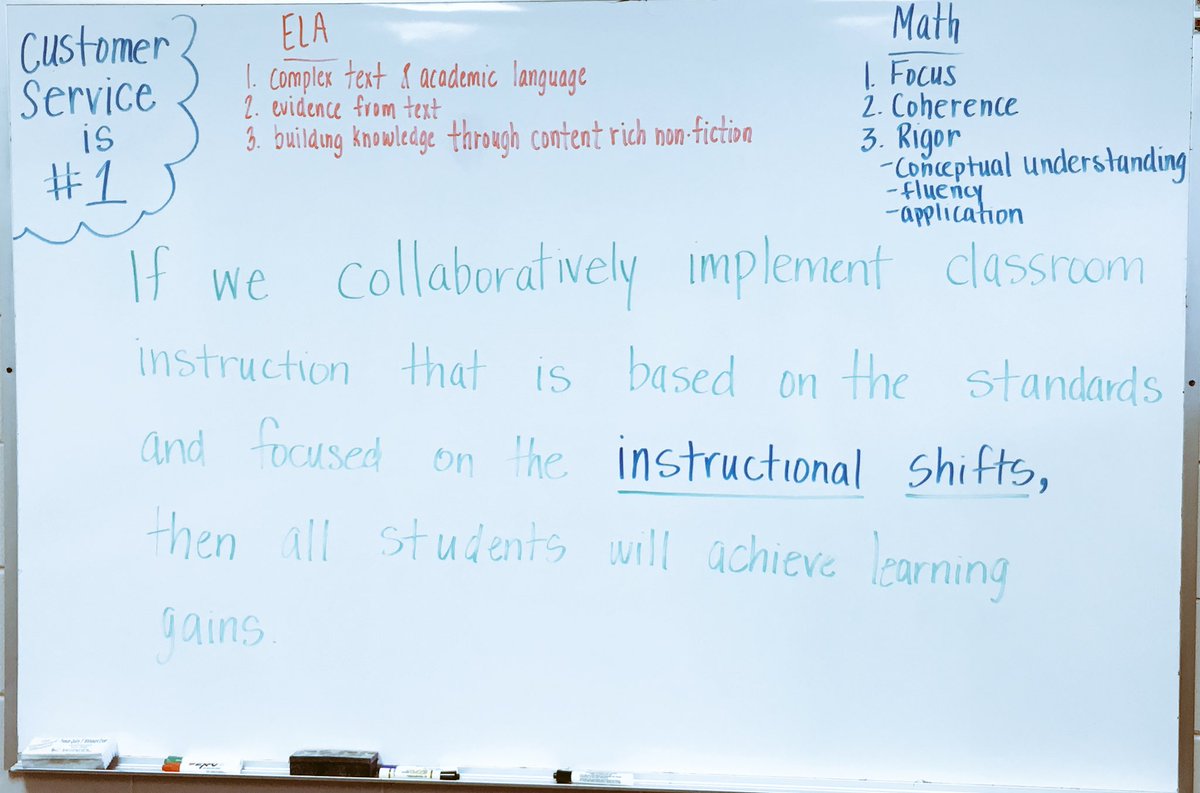 Customer
Service
is
#1
ELA
1. complex text & academic language
2. evidence from text
3. building knowledge through content rich non-fiction
Math
1. Focus
2. Coherence
3. Rigor
-Conceptual understanding
-fluency
-application
If we collaboratively implement classroom
instruction that is based on the standards
and focused on the instructional shifts,
then all students will achieve learning
gains.
EXPO